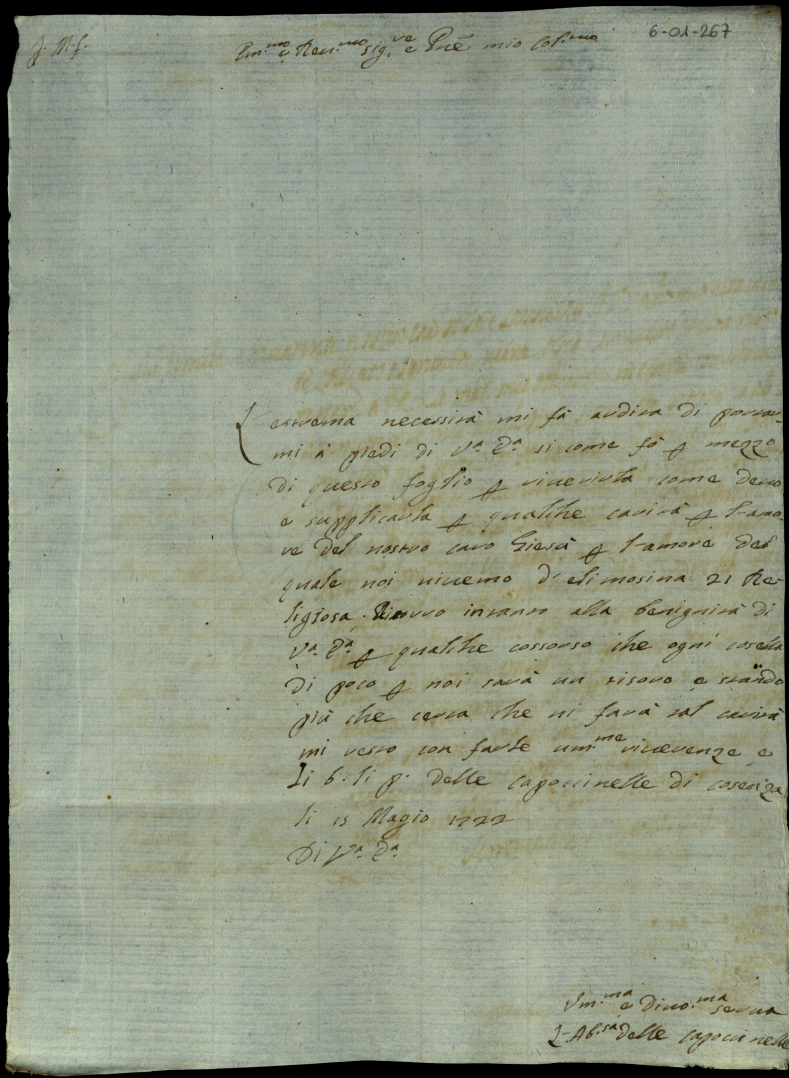 J. M. J.
Em.mo e Reu.mo Sig.re e Pñe mio Col.mo
6-01-267
L estrema necessità mi fà ardita di portar-
mi à piedi di V.a E.a si come fò p mezzo
di questo foglio p riuerirla come deuo
e supplicarla p qualche carità p l-amo-
re del nostro caro Giesù p l-amore del
quale noi viuemo d'elimosina 21 Re-
ligiosa. Ricorro intanto alla benignità di
V.a E.a p qualche socorso che ogni cosella
di poco p noi sarà un tisoro e stando
più che certa che ni farà tal carità
mi resto con farle um.me riuerenze e
li b. li p. delle capoccinelle di cosenza
li 15 Magio 1722
Di V.a E.a
Vm.ma e Diuo.ma serua
L-Ab.sa delle capoccinelle